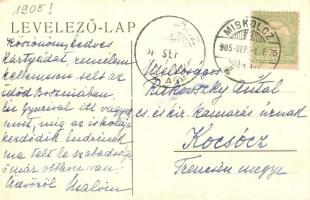 1905!
LEVELEZŐ-LAP
MISKOLCZ
905 SEP
Köszönöm kedves
kártyádat, remélem
kellemesen telt az
idöd Boszniában.
Én Gyurival itt vagyok
most, míg az iskola
kezdődik. Endrének
ma telt le szabadsága
ő már otthon van.
Üdvözöl
Méltóságos
Rakovszky Antal
cs. és kir. kamarás úrnak
Kocsócz
Trencsén megye